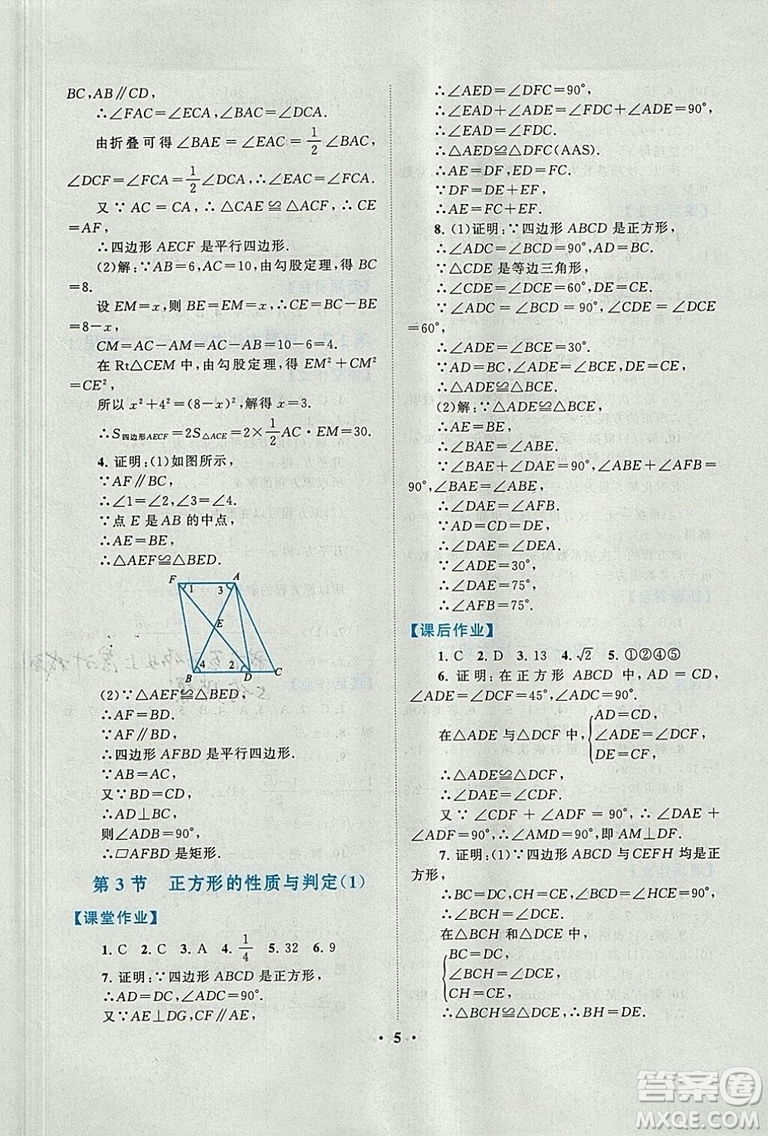 BC,AB∥CD,
∴∠FAC=∠ECA,∠BAC=∠DCA.
由折叠可得∠BAE=∠EAC=1/2∠FCA,
∠DCF=∠FCA=1/2∠DCA=∠EAC.
又∵AC=CA,∴△CAE≌△ACF,∴CE
=AF,
∴四边形AECF是平行四边形.
(2)解:∵AB=6,AC=10,由勾股定理,得BC
=8.
设EM=x,则BE=EM=x,∴CE=BC-BE=
8-x,
CM=AC-AM=AC-AB=10-6=4.
在Rt△CEM中,由勾股定理,得EM²+CM²
=CE²,
所以x²+4²=(8-x)²,解得x=3.
∴S四边形AECF=2S△ACE=2×1/2AC·EM=30.
4.证明:(1)如图所示,
∵AF∥BC,
∴∠1=∠2,∠3=∠4.
∵点E是AB的中点,
∴AE=BE,
∴△AEF≌△BED.
F A
1 3
E
4 2
B D C
(2)∵△AEF≌△BED,
∴AF=BD.
∵AF∥BD,
∴四边形AFBD是平行四边形.
∵AB=AC,
又∵BD=CD,
∴AD⊥BC,
则∠ADB=90°,
∴□AFBD是矩形.
第3节 正方形的性质与判定(1)
【课堂作业】
1.C 2.C 3.A 4.1/4 5.32 6.9
7.证明:∵四边形ABCD是正方形,
∴AD=DC,∠ADC=90°.
又∵AE⊥DG,CF∥AE,
∴∠AED=∠DFC=90°,
∴∠EAD+∠ADE=∠FDC+∠ADE=90°,
∴∠EAD=∠FDC.
∴△AED≌△DFC(AAS).
∴AE=DF,ED=FC.
∵DF=DE+EF,
∴AE=FC+EF.
8.(1)证明:∵四边形ABCD是正方形,
∴∠ADC=∠BCD=90°,AD=BC.
∵△CDE是等边三角形,
∴∠CDE=∠DCE=60°,DE=CE.
∵∠ADC=∠BCD=90°,∠CDE=∠DCE
=60°,
∴∠ADE=∠BCE=30°.
∵AD=BC,∠ADE=∠BCE,DE=CE,
∴△ADE≌△BCE.
(2)解:∵△ADE≌△BCE,
∴AE=BE,
∴∠BAE=∠ABE.
∵∠BAE+∠DAE=90°,∠ABE+∠AFB=
90°,∠BAE=∠ABE,
∴∠DAE=∠AFB.
∵AD=CD=DE,
∴∠DAE=∠DEA.
∵∠ADE=30°,
∴∠DAE=75°,
∴∠AFB=75°.
【课后作业】
1.C 2.D 3.13 4.√2 5.①②④⑤
6.证明:在正方形ABCD中,AD=CD,
∠ADE=∠CDF=45°,∠ADC=90°,
在△ADE与△CDF中,{AD=CD,
∠ADE=∠CDE,
DE=DF,
∴△ADE≌△CDF.
∴∠DAE=∠DCF.
又∵∠DCF+∠CFD=90°,
∴∠DAE+∠CFD=90°,∴∠AMD=90°,即AM⊥DF.
7.证明:(1)∵四边形ABCD与CEFH均是正方形,
∴BC=CD,CH=CE,∠BCD=∠HCE=90°,
∴∠BCH=∠DCE.
在△BCH和△DCE中,
{BC=DC,
∠BCH=∠DCE,
CH=CE,
∴△BCH≌△DCE,∴BH=DE.
·5·
答案圈
MXQE.COM